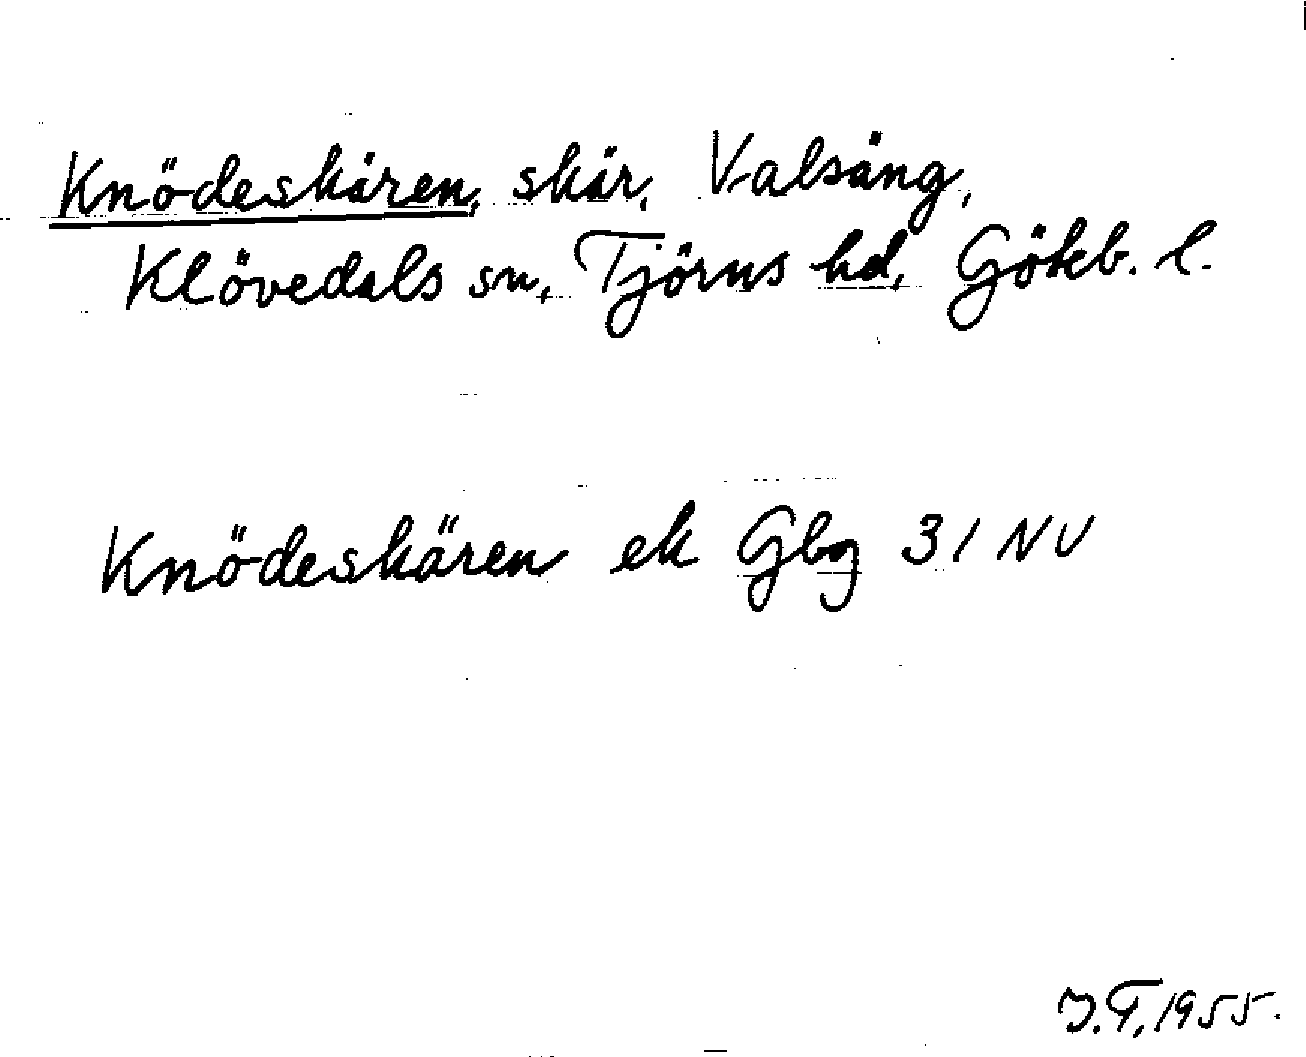 Knödeskären, skär, Valsäng,
Klövedals sn, Tjörns hd, Gökb. l.
Knödeskären ek Gbg 31 NV
J.T, 1955.